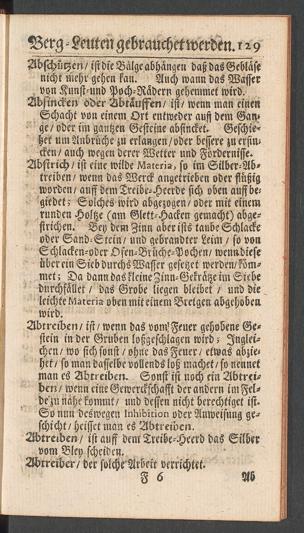 Berg-Leuten gebrauchet werden. 129
Abschützen / ist die Bälge abhängen daß das Gebläse
nicht mehr gehen kan. Auch wann das Wasser
von Kunst-und Poch-Rädern gehemmet wird.
Absincken oder Abtäuffen / ist / wenn man einen
Schacht von einem Ort entweder auff dem Gan-
ge / oder im gantzen Gesteine absincket. Geschie-
het um Anbrüche zu erlangen / oder bessere zu ersin-
cken / auch wegen derer Wetter und Fördernisse.
Abstrich / ist eine wilde Materia, so im Silber-Ab-
treiben / wenn das Werck angetrieben oder flüßig
worden / auff dem Treibe-Heerde sich oben auff be-
giebet; Solches wird abgezogen / oder mit einem
runden Holtze (am Glett-Hacken gemacht) abge-
strichen. Bey dem Zinn aber ists taube Schlacke
oder Sand-Stein / und gebrandter Leim / so von
Schlacken-oder Ofen-Brüche-Pochen / wenn diese
über ein Sieb durchs Wasser gesetzet werden / köm-
met; Da dann das kleine Zinn-Gekrätze im Siebe
durchfället / das Grobe liegen bleibet / und die
leichte Materia oben mit einem Bretgen abgehoben
wird.
Abtreiben / ist / wenn das vom Feuer gehobene Ge-
stein in der Gruben loßgeschlagen wird; Inglei-
chen / wo sich sonst / ohne das Feuer / etwas abzie-
het / so man dasselbe vollends loß machet / so nennet
man es Abtreiben. Sonst ist noch ein Abtrei-
ben / wenn eine Gewerckschafft der andern im Fel-
de zu nahe kommt / und dessen nicht berechtiget ist.
So nun deswegen Inhibition oder Anweisung ge-
schicht / heisset man es Abtreiben.
Abtreiben / ist auff dem Treibe-Heerd das Silber
vom Bley scheiden.
Abtreiber / der solche Arbeit verrichtet.
F 6 Ab